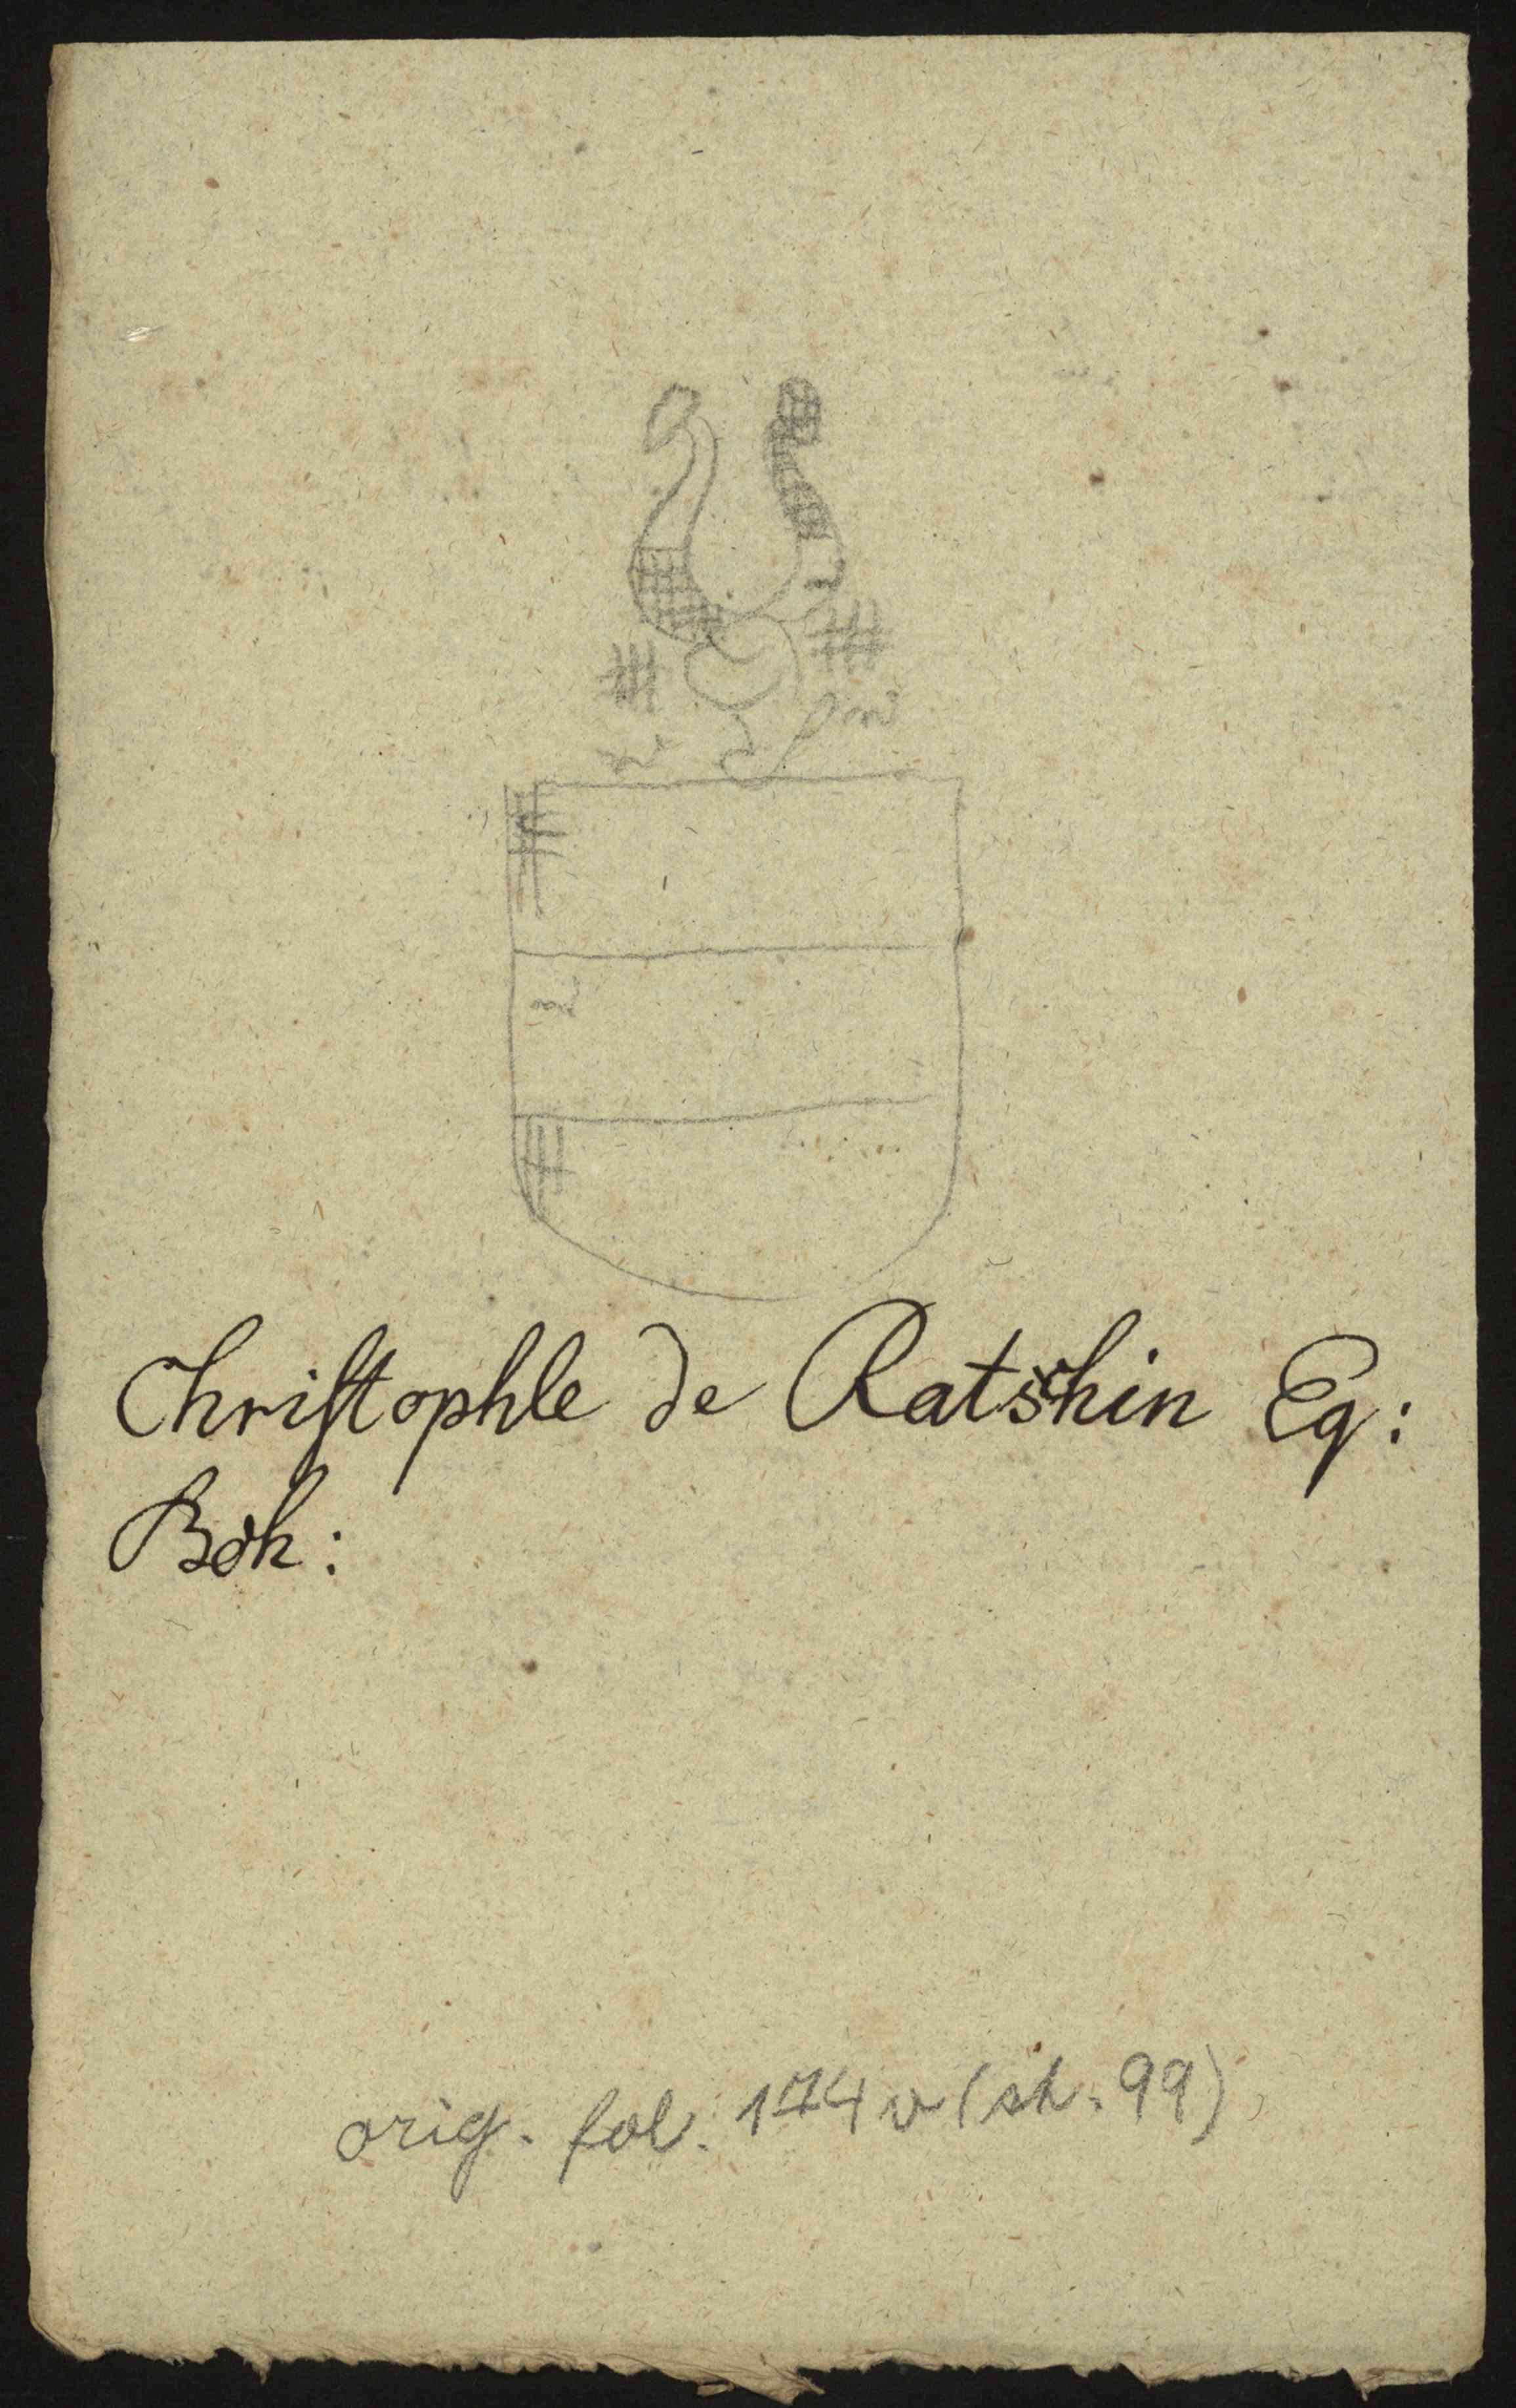 Chriſtophle de Ratschin Eq:
Böh:
orig. fol. 174 v (sh. 99)